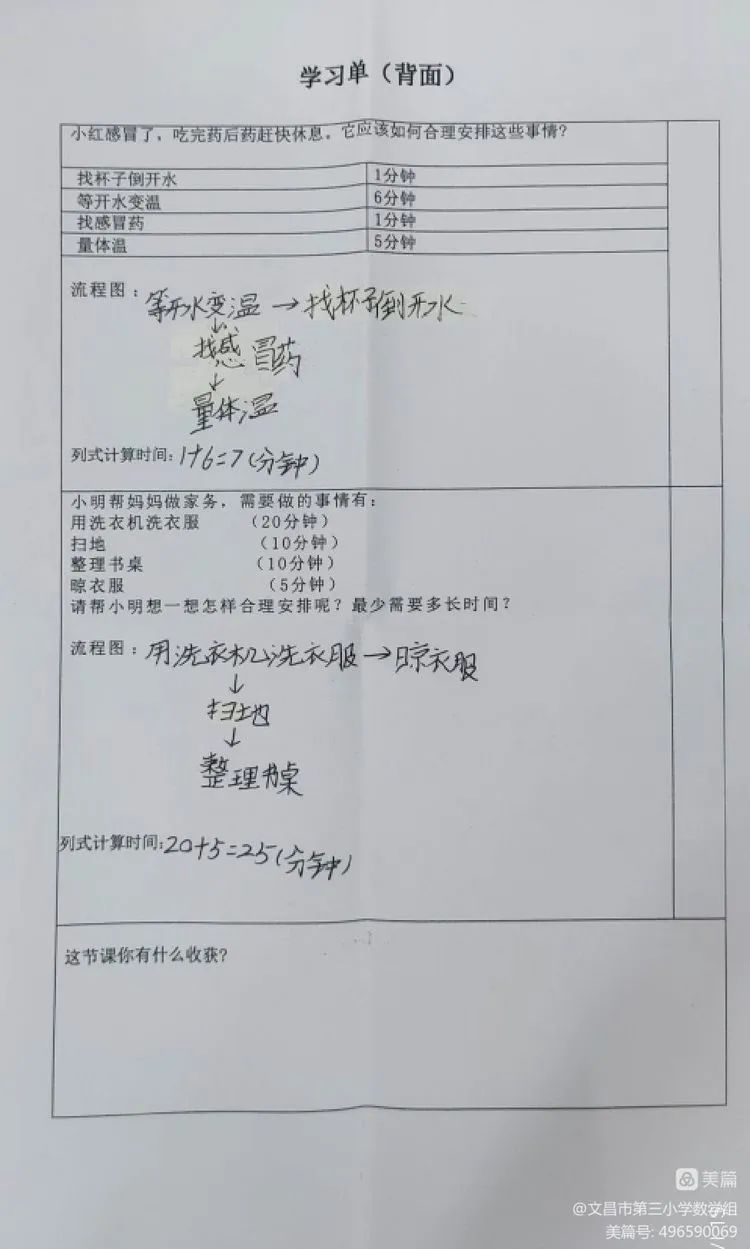 学习单（背面）
小红感冒了，吃完药后药赶快休息。它应该如何合理安排这些事情？
找杯子倒开水 1分钟
等开水变温 6分钟
找感冒药 1分钟
量体温 5分钟
流程图：等开水变温→找杯子倒开水
↓
找感冒药
↓
量体温
列式计算时间：1+6=7(分钟)
小明帮妈妈做家务，需要做的事情有：
用洗衣机洗衣服 （20分钟）
扫地 （10分钟）
整理书桌 （10分钟）
晾衣服 （5分钟）
请帮小明想一想怎样合理安排呢？最少需要多长时间？
流程图：用洗衣机洗衣服→晾衣服
↓
扫地
↓
整理书桌
列式计算时间：20+5=25(分钟)
这节课你有什么收获？
美篇
@文昌市第三小学数学组
美篇号: 496590069